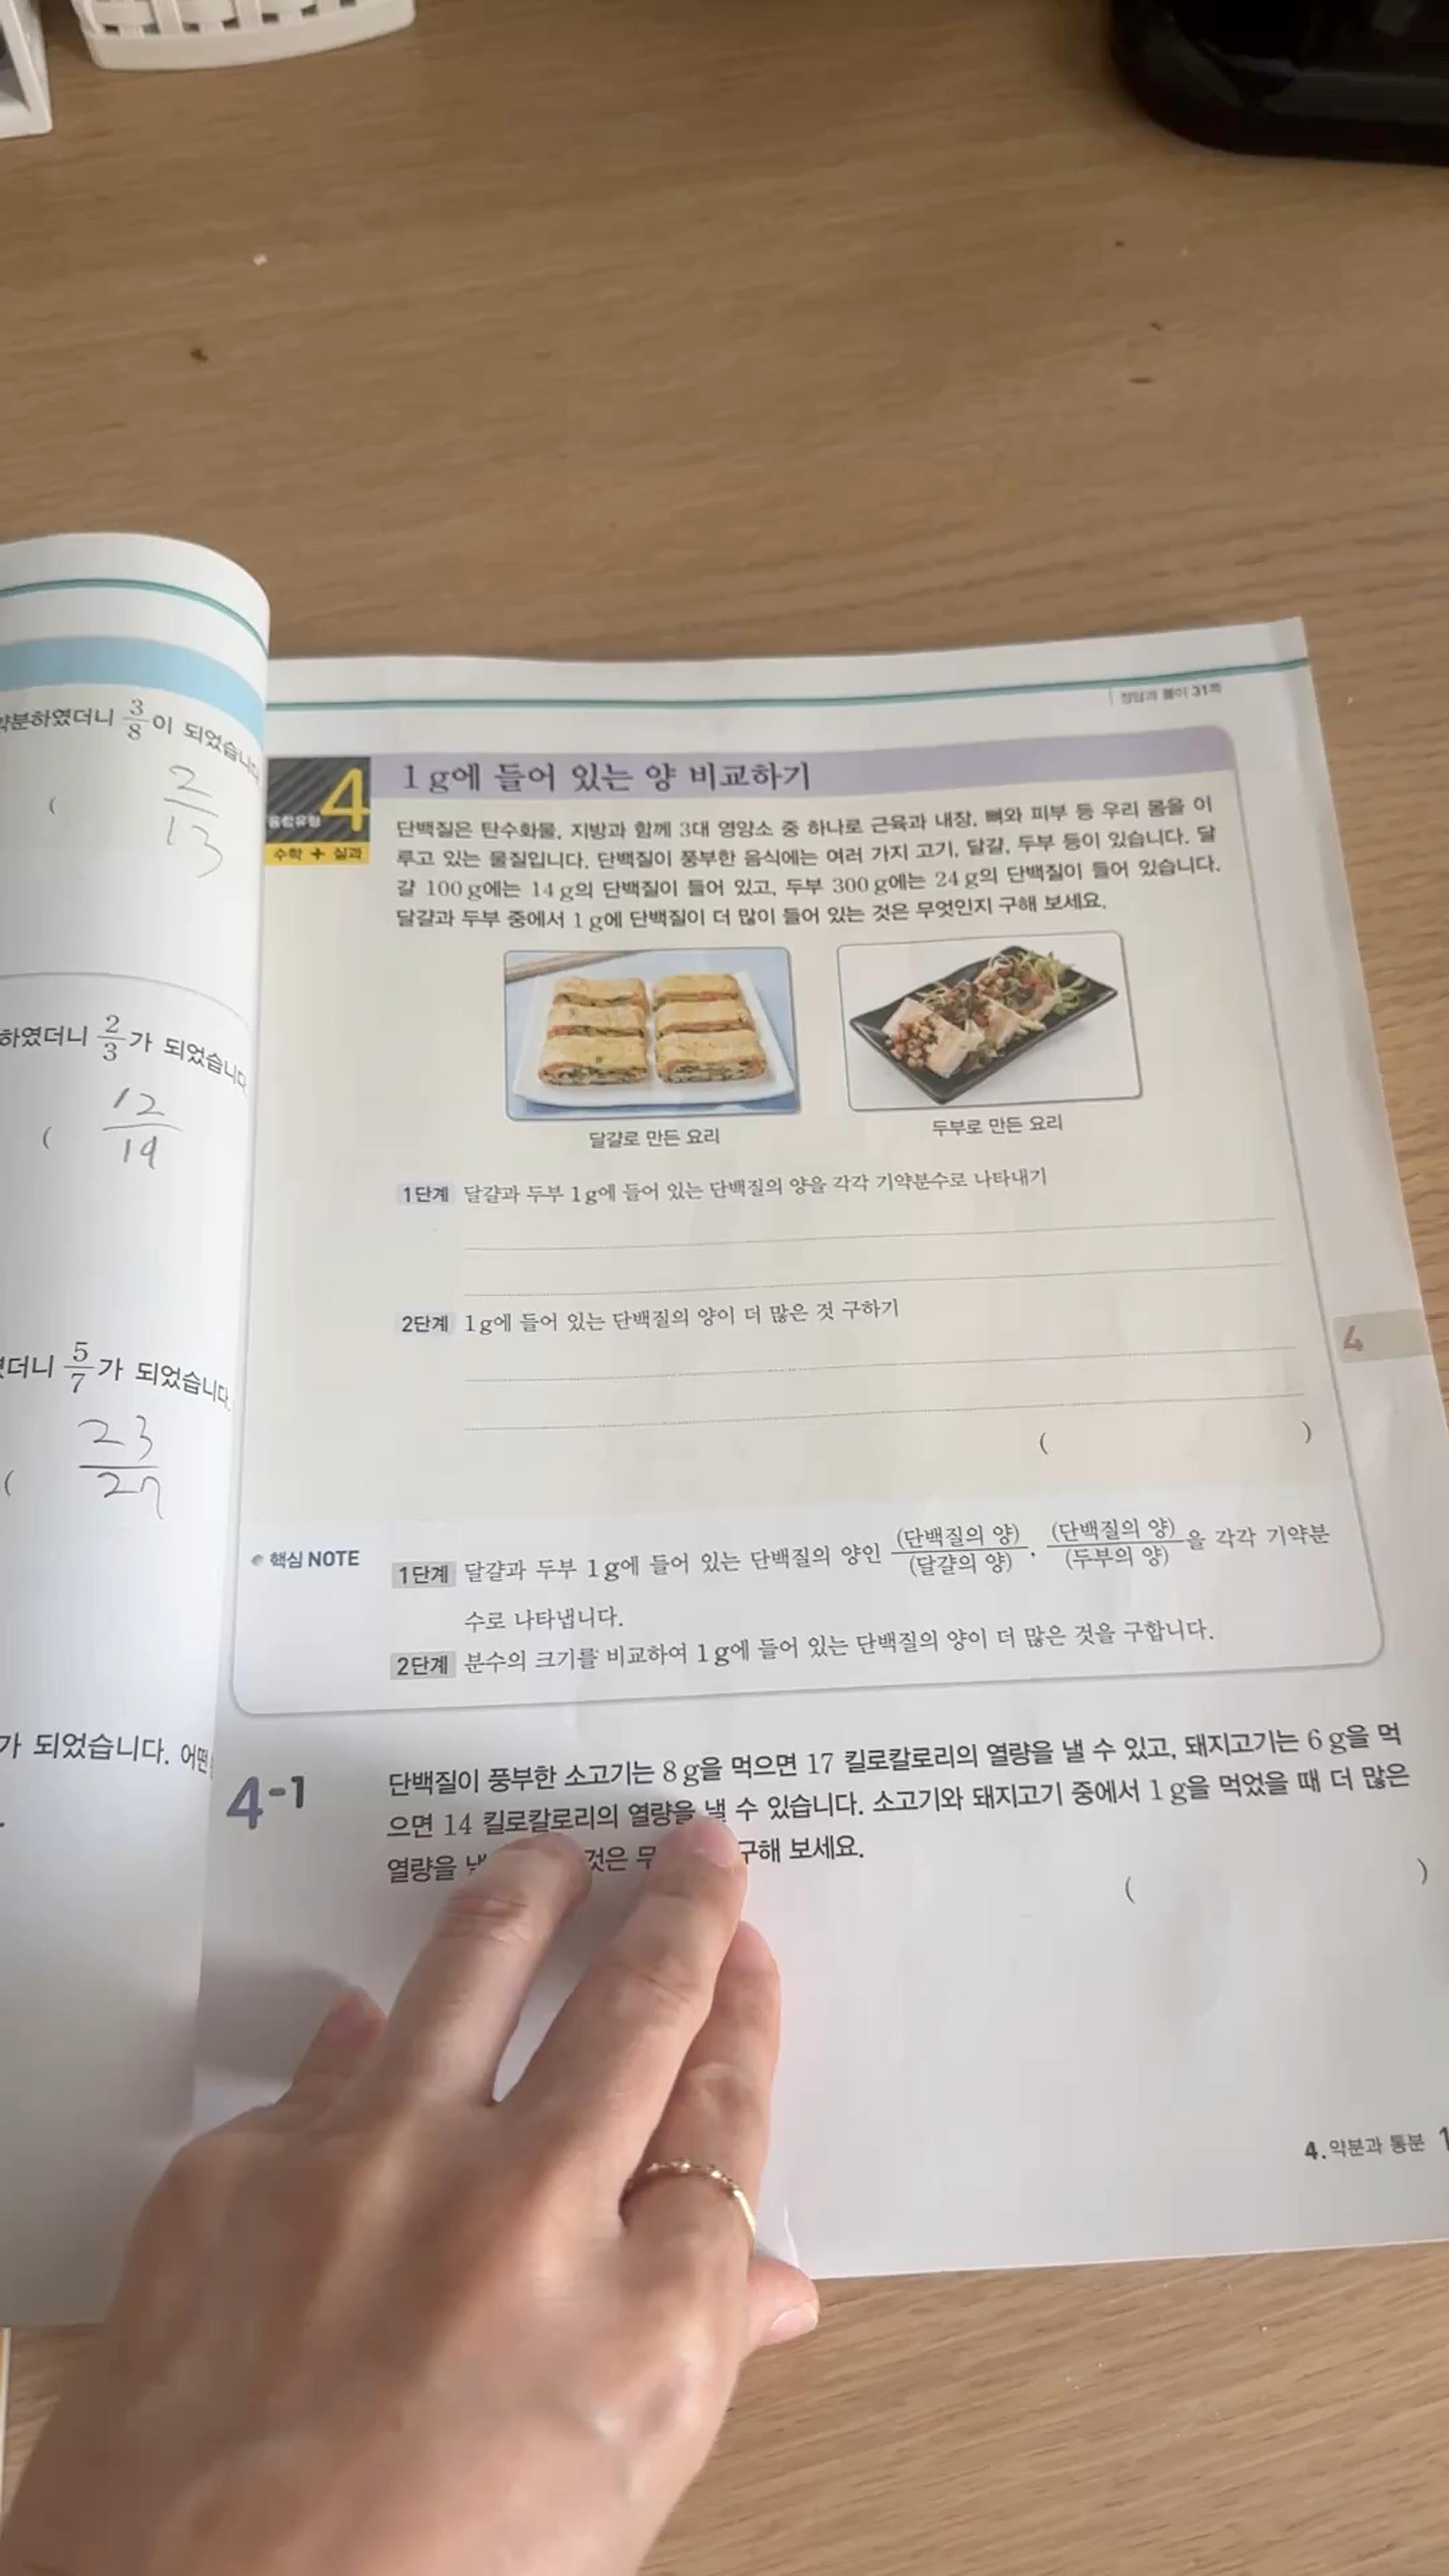 약분하였더니 3/8이 되었습니다
( 2/13
하였더니 2/3가 되었습니다
( 12/19
더니 5/7가 되었습니다.
( 23/27
가 되었습니다. 어떤
정답과 풀이 31쪽
융합유형 4
수학 + 실과
1 g에 들어 있는 양 비교하기
단백질은 탄수화물, 지방과 함께 3대 영양소 중 하나로 근육과 내장, 뼈와 피부 등 우리 몸을 이
루고 있는 물질입니다. 단백질이 풍부한 음식에는 여러 가지 고기, 달걀, 두부 등이 있습니다. 달
걀 100 g에는 14 g의 단백질이 들어 있고, 두부 300 g에는 24 g의 단백질이 들어 있습니다.
달걀과 두부 중에서 1 g에 단백질이 더 많이 들어 있는 것은 무엇인지 구해 보세요.
달걀로 만든 요리
두부로 만든 요리
1단계 달걀과 두부 1 g에 들어 있는 단백질의 양을 각각 기약분수로 나타내기
2단계 1 g에 들어 있는 단백질의 양이 더 많은 것 구하기
( )
4
핵심 NOTE
1단계 달걀과 두부 1 g에 들어 있는 단백질의 양인 (단백질의 양)/(달걀의 양), (단백질의 양)/(두부의 양)을 각각 기약분
수로 나타냅니다.
2단계 분수의 크기를 비교하여 1 g에 들어 있는 단백질의 양이 더 많은 것을 구합니다.
4-1
단백질이 풍부한 소고기는 8 g을 먹으면 17 킬로칼로리의 열량을 낼 수 있고, 돼지고기는 6 g을 먹
으면 14 킬로칼로리의 열량을 낼 수 있습니다. 소고기와 돼지고기 중에서 1 g을 먹었을 때 더 많은
열량을 것은 구해 보세요.
( )
4. 약분과 통분